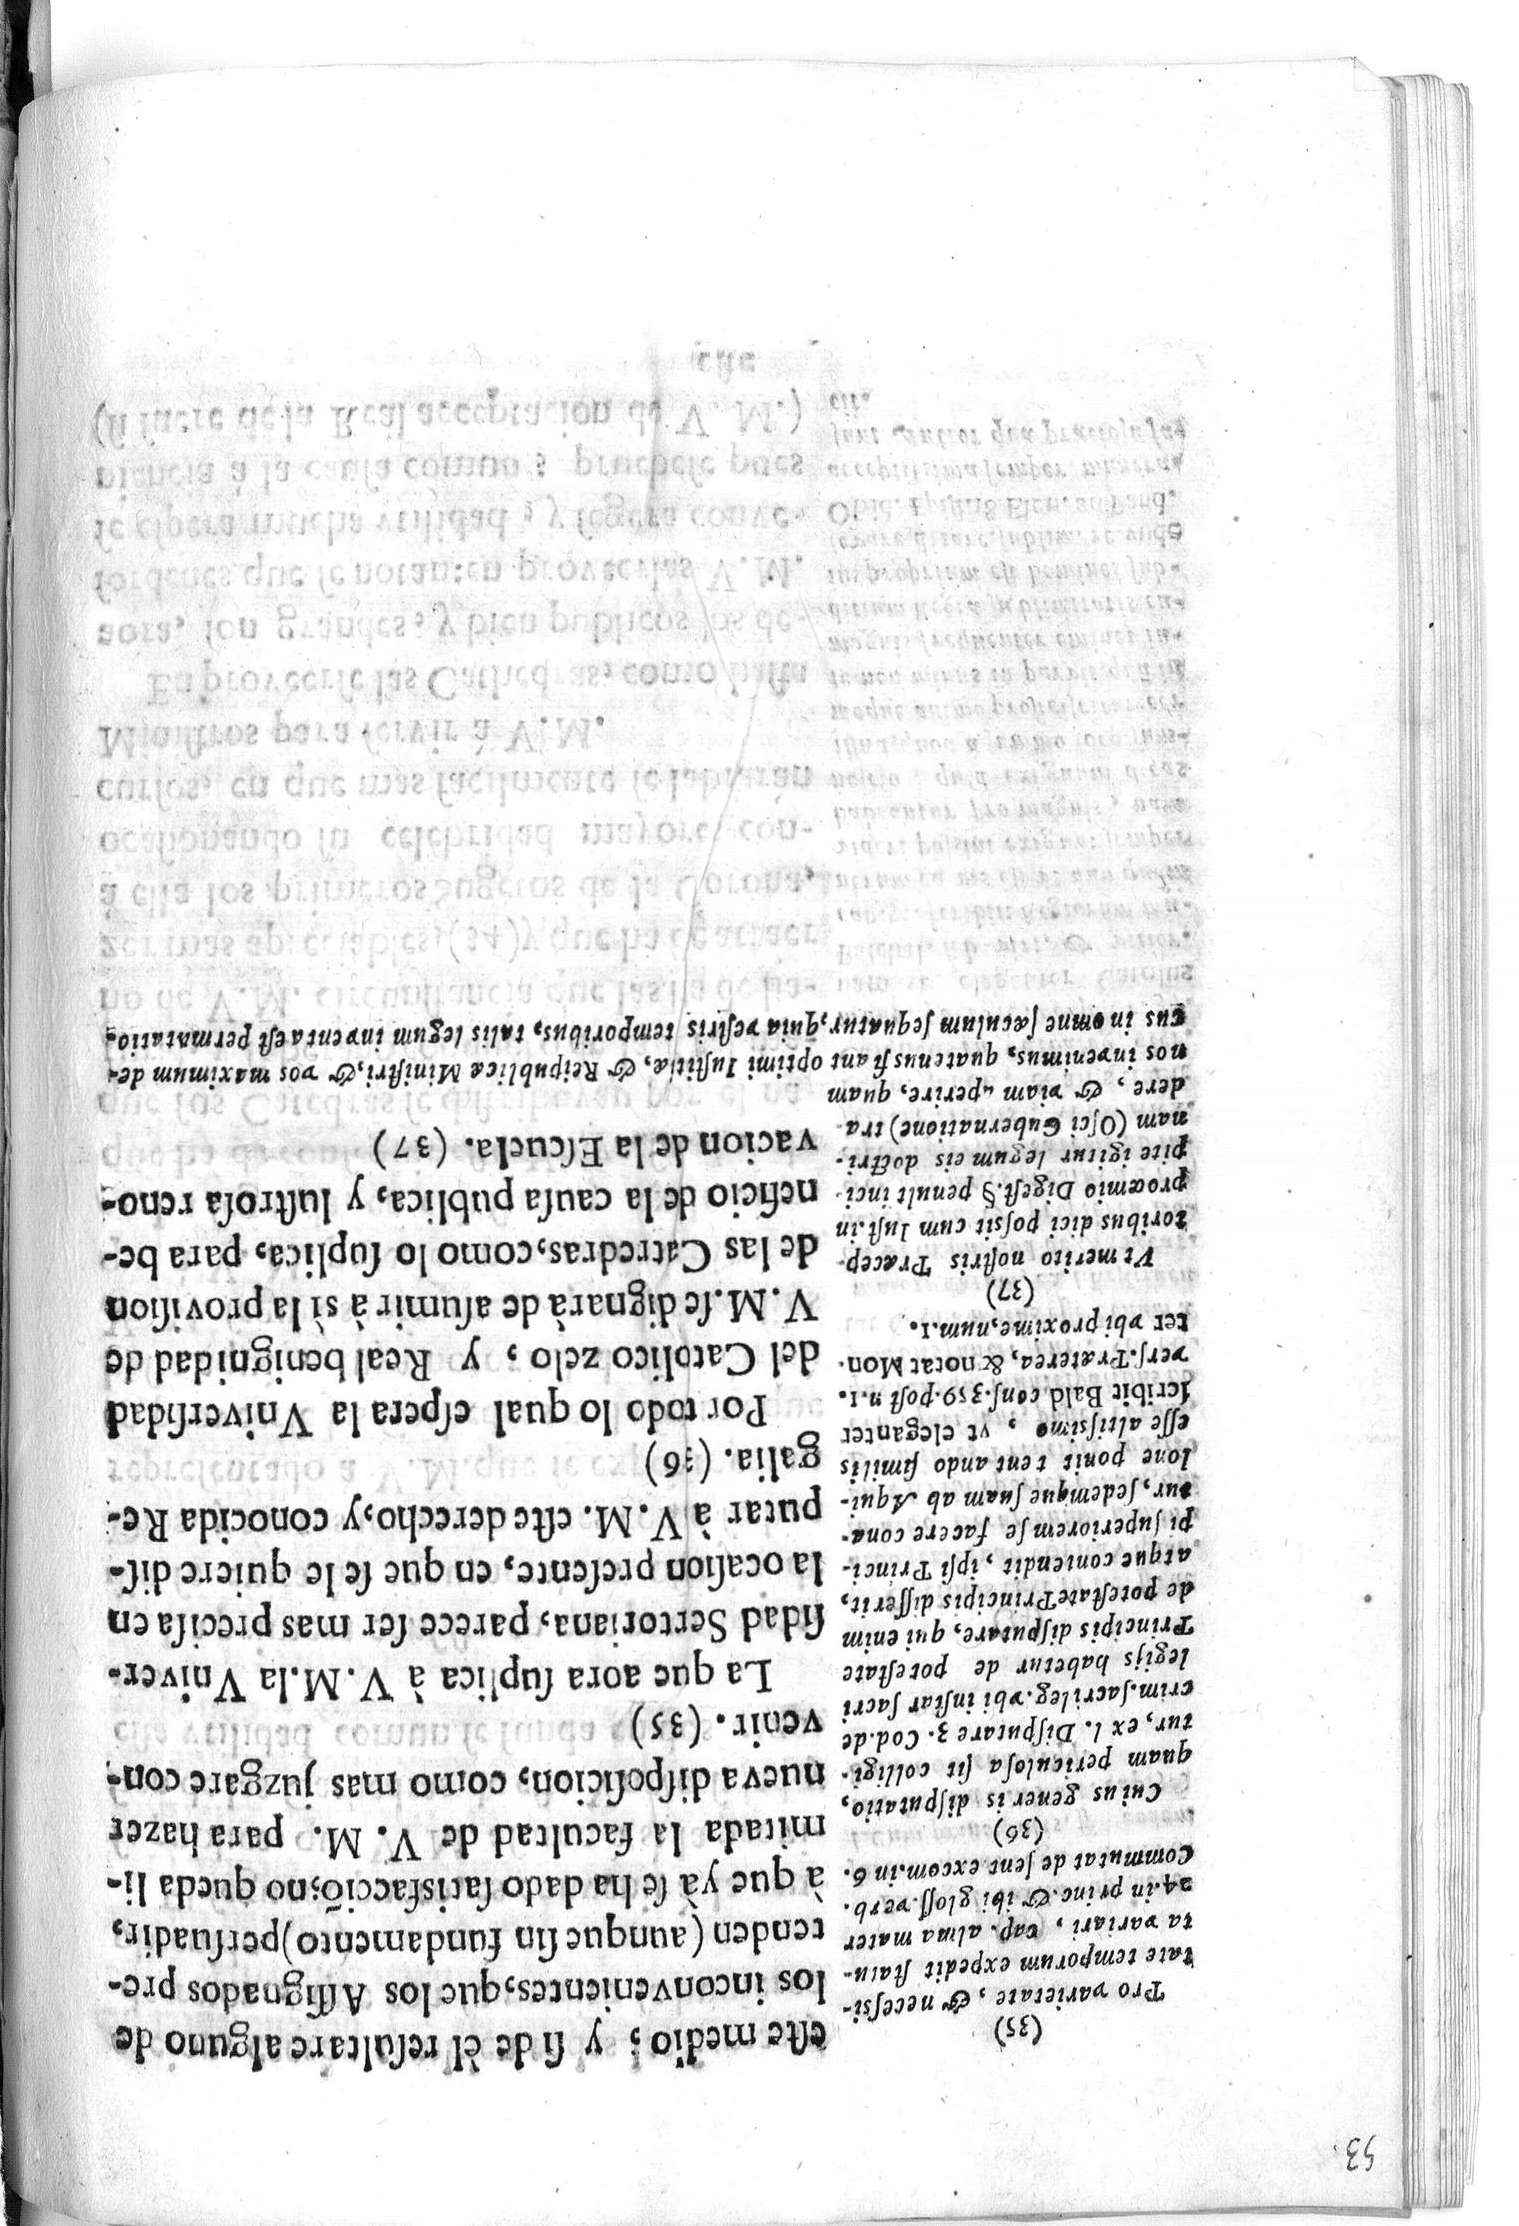 53.
(35)
Pro varietate, & necessi-
tate temporum expedit statu-
ta variari, cap. alma mater
24. in princ. & ibi gloss. verb.
Commutat de sent excom. in 6.
(36)
Cuius generis disputatio,
quam periculosa sit colligi-
tur, ex l. Disputare 3. Cod. de
crim. sacrileg. vbi instar sacri
legijs habetur de potestate
Principis disputare, qui enim
de potestate Principis disserit,
atque contendit, ipsi Princi-
pi superiorem se facere cona-
tur, sedemque suam ab Aqui-
lone ponit tentando similis
esse altissimo, vt eleganter
scribit Bald cons. 359. post n. 1.
vers. Præterea, & notat Mon.
ter vbi proxime, num. 1.
(37)
Vt merito nostris Præcep-
toribus dici possit cum Iust. in
proœmio Digest. §. penult inci-
pite igitur legum eis doctri-
nam (Osci Gubernatione) tra-
dere, & viam aperire, quam
este medio; y si de èl resultare alguno de
los inconvenientes, que los Assignados pre-
tenden (aunque sin fundamento) persuadir,
à que yà se ha dado satisfacciõ; no queda li-
mitada la facultad de V. M. para hazer
nueva disposicion, como mas juzgare con-
venir. (35)
La que aora suplica à V. M. la Vniver-
sidad Sertoriana, parece ser mas precisa en
la ocasion presente, en que se le quiere dis-
putar à V. M. este derecho, y conocida Re-
galia. (36)
Por todo lo qual espera la Vniversidad
del Catolico zelo, y Real benignidad de
V. M. se dignarà de asumir à sì la provision
de las Catredras, como lo suplica, para be-
neficio de la causa publica, y lustrosa reno-
vacion de la Escuela. (37)
nos invenimus, quatenus fiant optimi Iustitiæ, & Reipublicæ Ministri, & vos maximum de-
cus in omne sæculum sequatur, quia vestris temporibus, talis legum inventa est permutatio.